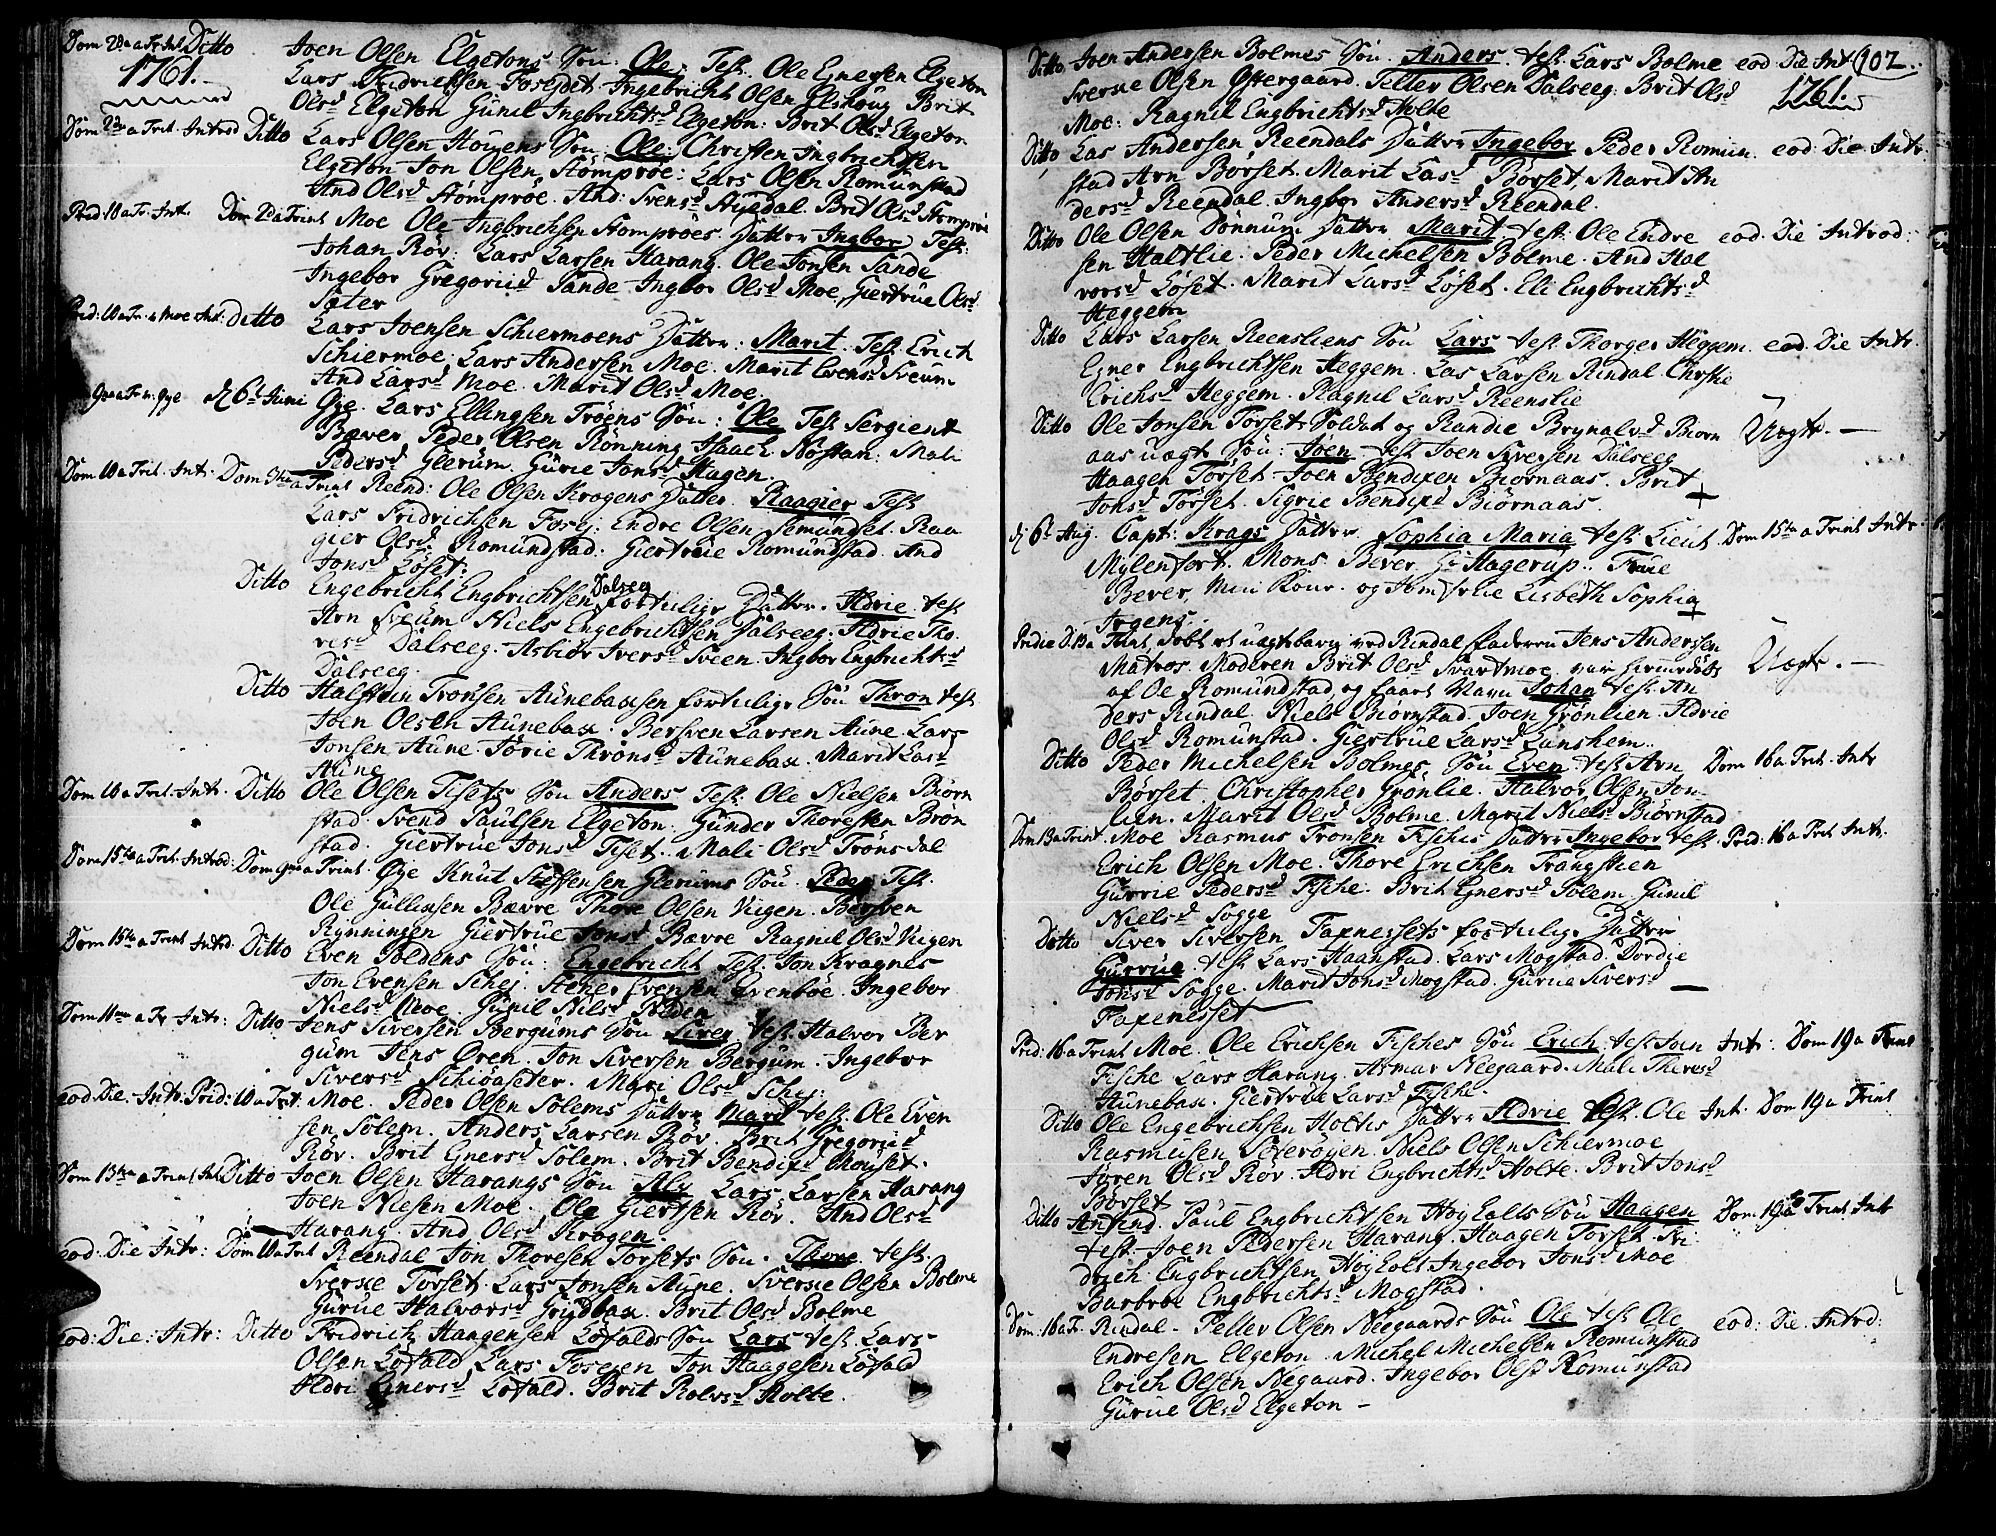 Dom 2da a Tr. Int Ditto Joen Olsen Elgetons Søn: Ole. Test. Ole Egnersen Elgeton
1761. Lars Fridrichsen Foseidet Ingebricht Olsen Elshoug Brit
Olsd Elgeton Gunil Ingbrichtsd Elgeton: Brit Olsd Elgeton
Ditto Lars Olsen Houens Søn: Ole: Christen Ingbrichtsen
Elgeton Jon Olsen, Stomprøe: Lars Olsen Romunstad
And Olsd Stomprøe. And: Svensd Brit Olsd Stomprøe
Moe Ole Ingbrichtsen Stomprøes Datter Ingbor Test:
Johan Røv. Lars Larsen Harang. Ole Jonsen Sande
Ingebor Gregoriid Sande Ingbor Olsd Moe, Giertrue Olsd
Sæter
Ditto Lars Joensen Schiermoens Datter: Marit. Test Erich
Schiermoe: Lars Andersen Moe. Marit Evensd Sveum
And Larsd Moe. Marit Olsd Moe
d 6t Juni Øye. Lars Ellingsen Trøens Søn: Ole Test Sergient
Bæver. Peder Olsen Rønning, Isaach Nostan: Mali
Pedersd Glerum. Gurie Jonsd Hagen.
Dom 10 a Trit. Intr. Reend: Ole Olsen Krogens Datter. Raagier Test
Lars Fridrichsen Fosej: Endre Olsen Semundset. Raa
gier Olsd Romundstad: Giertrue Romundstad. And
Jonsd Løset:
Ditto Engebricht Engbrichtsen Dalseeg fortulige Datter. Ildrie test
Arn Sveum Niels Engebrichtsen Dalseeg. Ildrie Tho
resd Dalseeg. Asbiør Iversd Sveen. Ingbor Engbrichtsd
Dalseeg.
Ditto Halsten Tronsen Aunebausen fortulige Søn Thron test
Joen Olsen Aunebau. Bersven Larsen Aune. Lars
Jonsen Aune. Jørie Thronsd Aunebau. Marit Larsd
Aune
Dom 10 a Trit. Intr. Ditto Ole Olsen Tisets Søn Anders Test: Ole Nielsen Biørn
stad. Svend Paulsen Elgeton. Gunder Thoresen Brøn
stad. Giertrue Jonsd Tiset. Mali Olsd Trønsdal
Dom 15ta a Trit. Introd: Øye Knut Steffensen Glerums Søn. Peder Test.
Ole Gullixsen Bævre Thore Olsen Viigen. Bersven
Rynningen Giertrue Jonsd Bævre Ragnil Olsd Viigen
Dom 15ta a Trint Introd. Ditto Even Poldens Søn: Engebricht Test. Jon Kragnes
Jon Evensen Schej. Evensen Evenbøe. Ingebor
Nielsd Moe. Gunil Nilsd Polden
Ditto Jens Siversen Bergums Søn Siver Test. Halvor Ber
gum Jens Øren. Jon Siversen Bergum. Ingebor
Siversd Schiøaseter. Mari Olsd Schej:
eod: Die: Intr: Prid: 10 a Trt. Moe. Peder Olsen Solems Datter Marit test. Ole Even
sen Solem. Anders Larsen Røv. Brit Gregoriid
Røv. Brit Egnersd Solem. Brit Bendixd Mouset.
Dom 13tia a Trint Int Ditto Joen Olsen Harangs Søn Lars Larsen Harang
Joen Nielsen Moe. Ole Giertsen Røv. And Olsd
Harang. And Olsd Krogen.
eod: Die Intr: Dom 10 a Trint Reendal Jon Thoresen Torsets Søn. Thore test.
Sverue Torset. Lars Jonsen Aune. Sverue Olsen Bolme
Gurue Halvorsd Grydbau. Brit Olsd Bolme
eod: Die: Intr: Ditto Fridrich Haagensen Løfalds Søn Lars test. Lars
Olsen Løfald Lars Foseien Jon Haagesen Løfald
Ildri Egnersd Løfald. Brit Rolvsd Holte.
102.
Ditto Iven Andersen Bolmes Søn. Anders. test. Lars Bolme eod: Die Int.
1761.
Sverue Olsen Østergaard. Peter Olsen Dalseeg. Brit Olsd
Moe: Ragnil Engbrichtsd Holte
Ditto Las Andersen Reendals Datter Ingebor Peder Romun eod: Die Intr.
stad Arn Børset. Marit Lasd Børset, Marit An
dersd Reendal. Ingbor Andersd Reendal.
Ditto Ole Olsen Dønnum Datter Marit test: Ole Endre eod: Die Introd:
sen Haltlie. Peder Michelsen Bolme. And Hal
vorsd Løset. Marit Larsd Løset. Eli Engbrichtsd
Heggebø
Ditto Lars Larsen Reensliens Søn Lars test. Thorger Heggem. eod: Die Intr.
Egner Engbrichtsen Heggem. Las Larsen Rindal. Chrstie
Erichsd Heggem. Ragnil Larsd Reenslie
Ditto Ole Jonsen Torset Soldat og Randie Brynalvsd Biørn Uægte. —
aas uægt Søn: Joen test Joen Siversen Dalseeg
Haagen Torset Joen Bendixen Biørnaas. Brit
Jonsd Torset. Sigrie Bendixd Biørnaas.
d 6t Aug. Capt: Krags Datter Sophia Maria test. Lieut. Dom 15ta a Trint Intr.
Mylenfort. Mons. Bever. Hagerup. Frue
Bever, Min Kone. og Jomfrue Lisbeth Sophia
Irgens.
døbt et uægtebarn ved Rindal Faderen Jens Andersen
Matros, Moderen Brit Olsd Svartmoe Uægte. —
af Oe Romundstad og Navn Johan test. An
ders Rindal. Niels Biørnstad. Joen Grønlien. Ildrie
Olsd Romunstad. Giertrue Larsd Lanshem.
Ditto Peder Michelsen Bolmes Søn Even test. Arn Dom 16 a Trit. Intr
Børset Christopher Grønlie. Halvor Olsen Jon
lien. Marit Olsd Bolme. Marit Nielsd Biørnstad
Dom 13 a Trint. Moe Rasmus Tronsen Fisches Datter Ingebor test. Prid: 16 a Trit Intr.
Erich Olsen Moe. Thore Erichsen Trangshen
Gurrie Pedersd Fische. Brit Egnersd Solem. Gunil
Nielsd Sogge
Ditto Siver Siversen Faxnessets fortulige Datter
Gurrue. test. Lars Haanstad. Lars Mogstad. Dordie
Jonsd Sogge. Marit Jonsd Mogstad. Gurue Siversd
Faxnesset
Prid: 16 a Trint Moe. Ole Erichsen Fisches Søn Erich. test Joen Intr: Dom 19 a Trint
Fische Lars Harang. Asmar Neegaard. Mali Thoresd
Aunebau. Giertrue Larsd Fische.
Ditto Ole Engebrichtsen Holtes Datter Ildrie test. Ole Int. Dom 19 a Trint
Rasmusen Seterøien. Niels Olsen Schiermoe
Jøren Olsd Røv. Ildri Engbrichtsd Holte. Brit Jonsd
Børset
Ditto Anfind. Paul Engbrichtsen Høyholts Søn Haagen Dom. 19 a Trint. Int
test Joen Pedersen Harang. Haagen Torset. Fri
drich Engbrichtsen Høyholt Ingebor Jonsd Moe
Barbroe Engbrichtsd Mogstad.
Dom. 16 a Tr. Rindal. Peller Olsen Neegaards Søn Ole test Ole eod: Die. Introd:
Endresen Elgeton. Michel Michelsen Romunstad
Erich Olsen Negaard. Ingebor Olsd Romunstad
Gurue Olsd Elgeton —